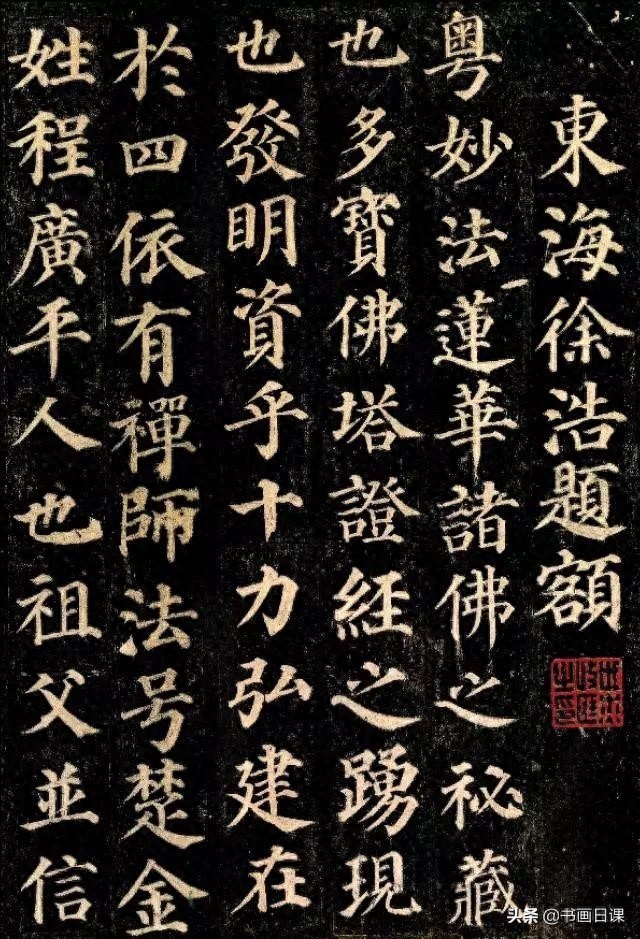 東海徐浩題額
粵妙法蓮華諸佛之祕藏
也多寶佛塔證經之踴現
也發明資乎十力弘建在
於四依有禪師法号楚金
姓程廣平人也祖父並信
头条 @书画日课